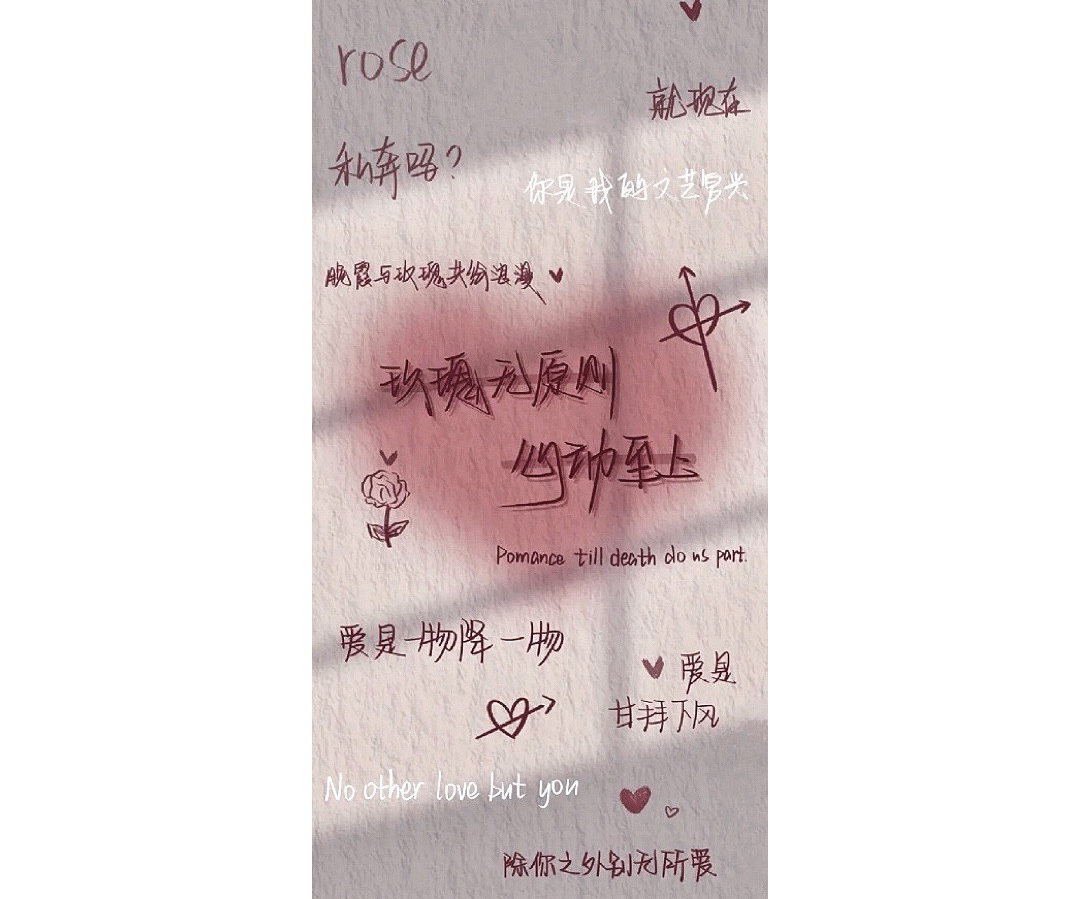 rose
就现在
私奔吗?
你是我的文艺复兴
晚霞与玫瑰共绘浪漫
玫瑰无原则
心动至上
Pomance till death do us part.
爱是一物降一物
爱是
甘拜下风
No other love but you
除你之外别无所爱